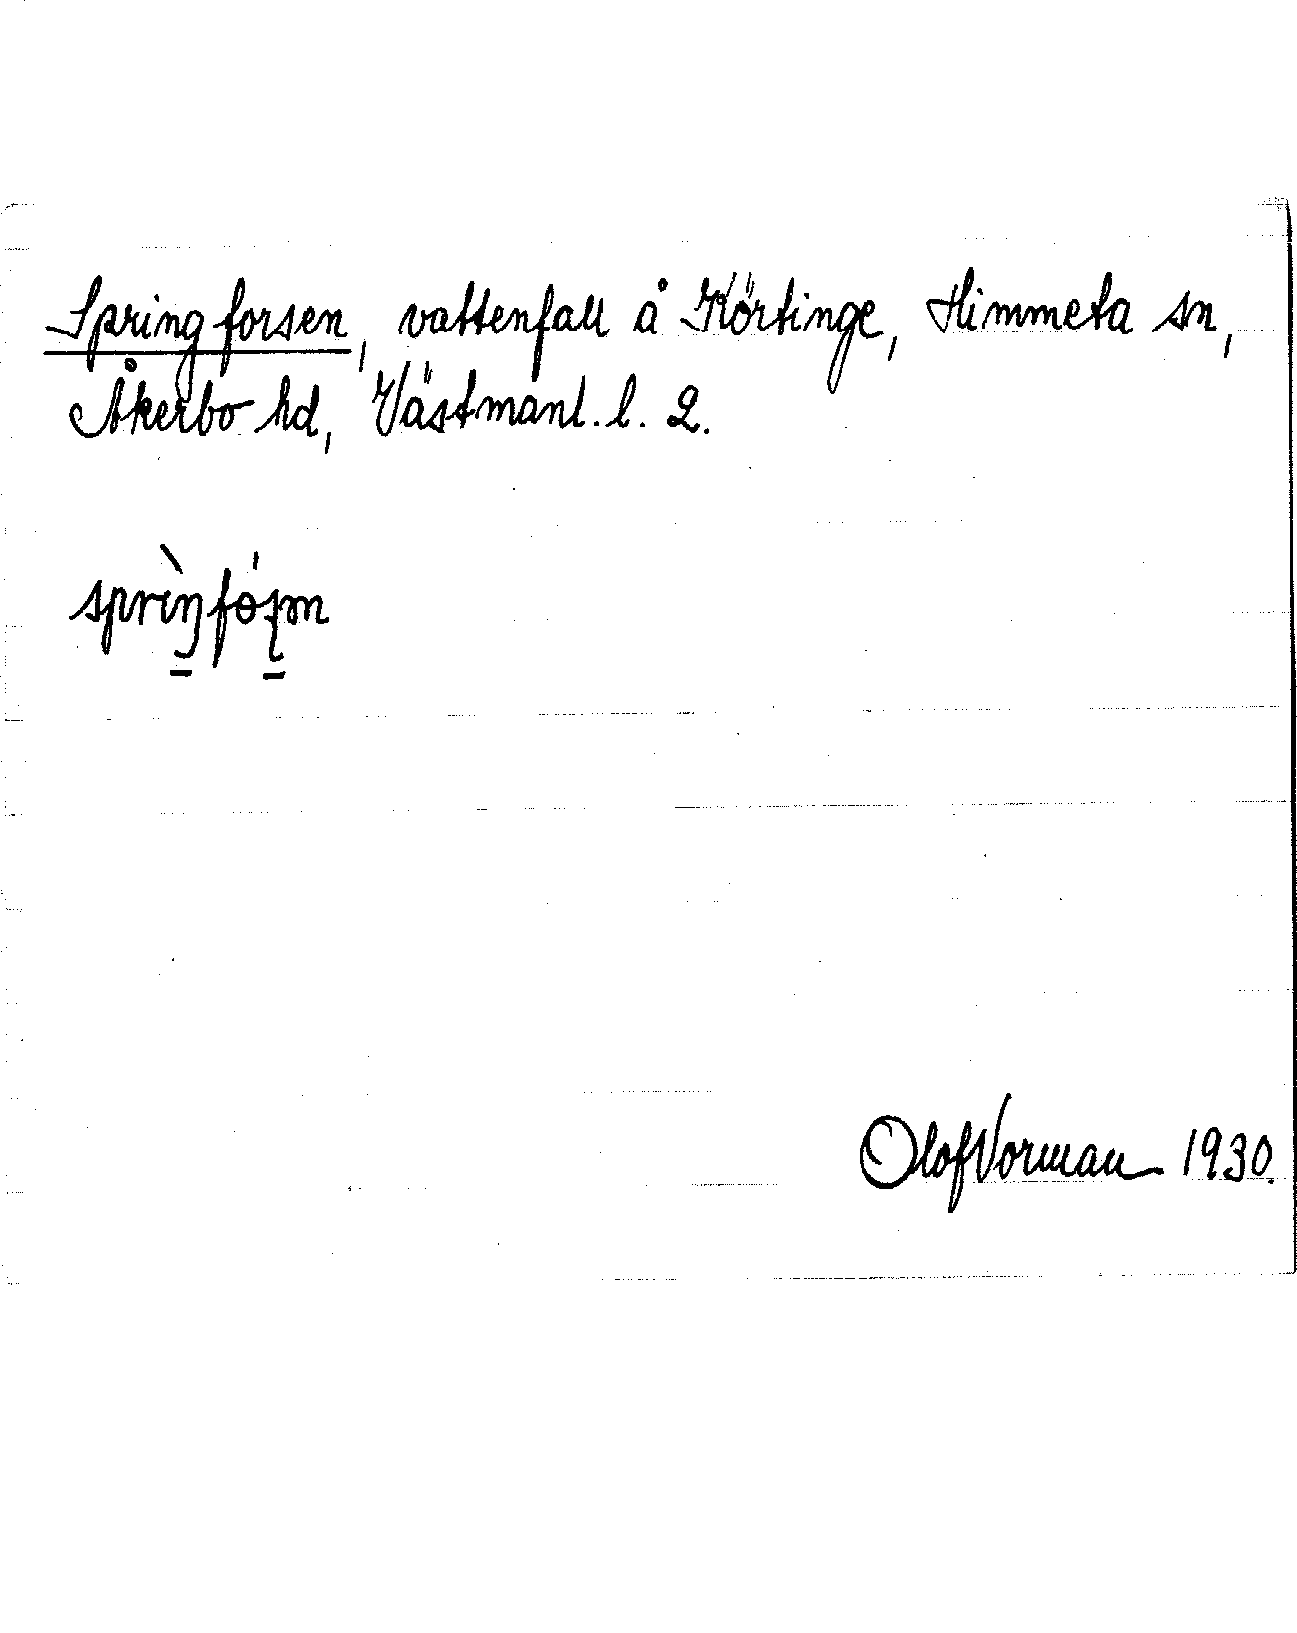 Springforsen, vattenfall å Körtinge, Himmeta sn,
Åkerbo hd, Västmanl. l. 2.
Olof Vorman 1930.